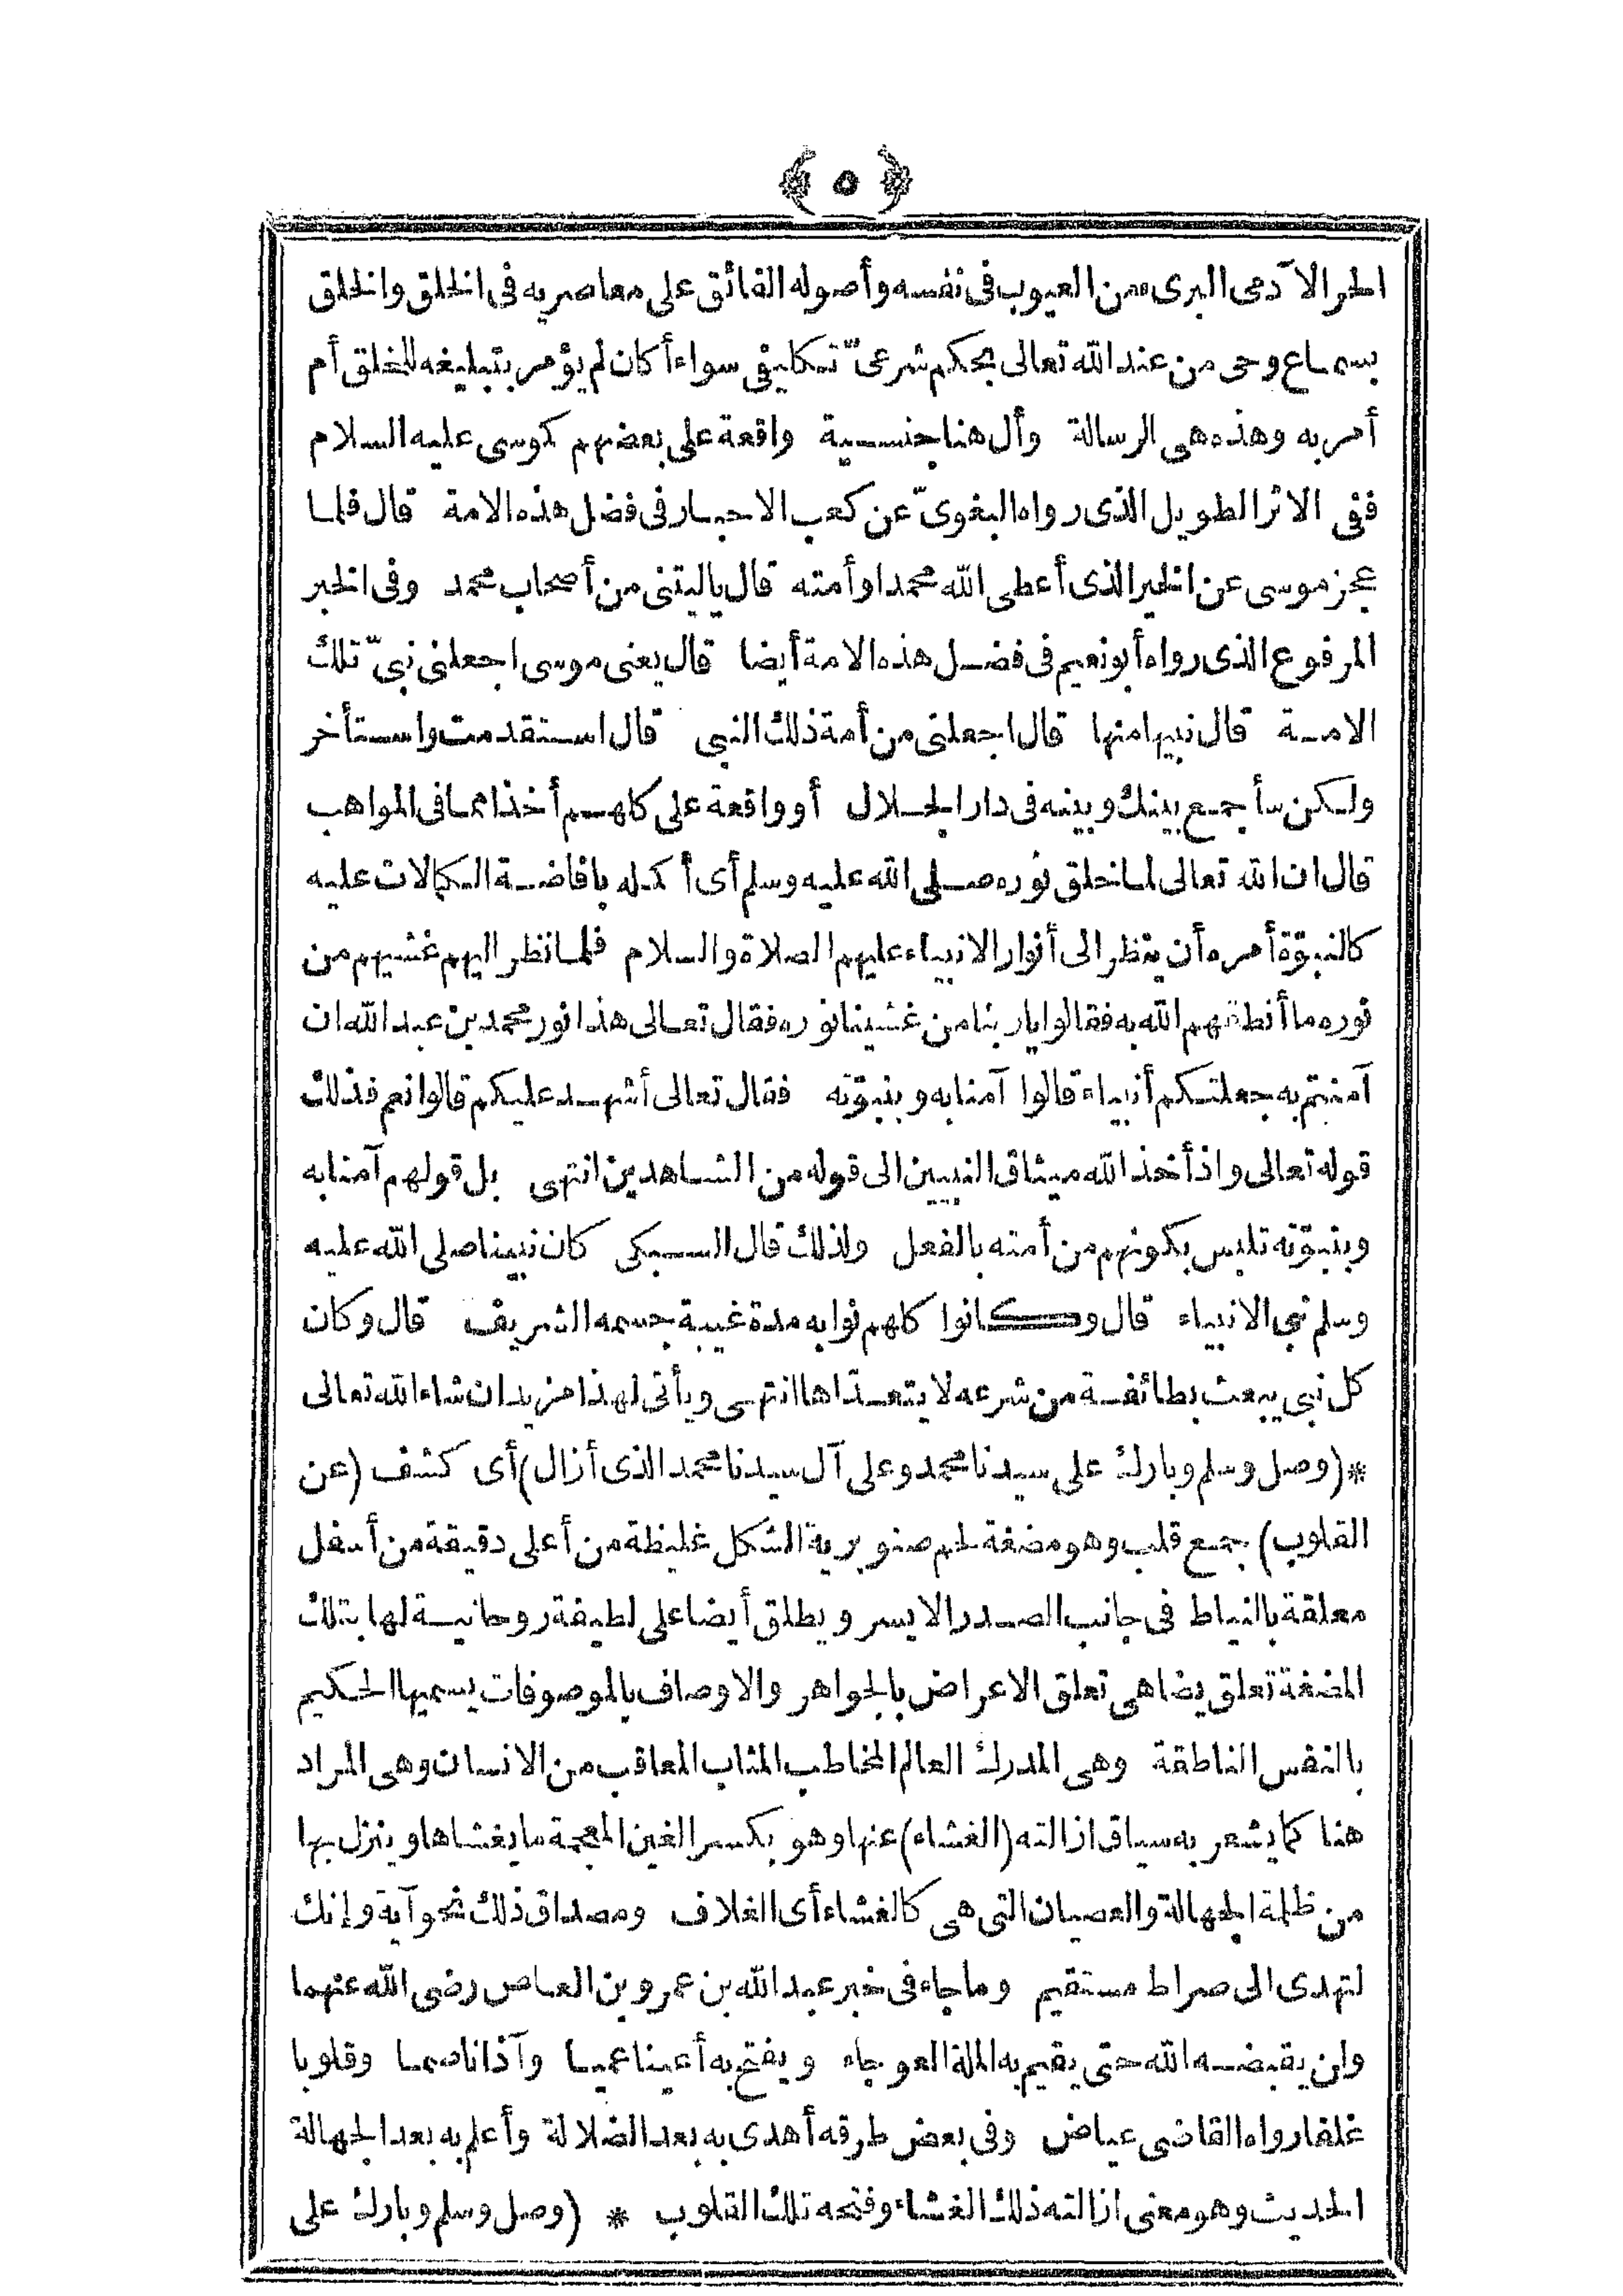 ﴿ ٥ ﴾
الحر الآدمى البرىء من العيوب فى نفسه وأصوله الفائق على معاصريه فى الخلق والخلق
بسماع وحى من عند الله تعالى بحكم شرعىّ تكليفى سواء أكان لم يؤمر بتبليغه للخلق أم
أمر به وهذه هى الرسالة وأل هنا جنسية واقعة على بعضهم كموسى عليه السلام
ففى الاثر الطويل الذى رواه البغوىّ عن كعب الاحبار فى فضل هذه الامة قال فلما
عجز موسى عن الخير الذى أعطى الله محمدا وأمته قال ياليتنى من أصحاب محمد وفى الخبر
المرفوع الذى رواه أبو نعيم فى فضل هذه الامة أيضا قال يعنى موسى اجعلنى نبىّ تلك
الامة قال نبيها منها قال اجعلنى من أمة ذلك النبى قال استقدمت واستأخر
ولكن سأجمع بينك وبينه فى دار الجلال أو واقعة على كلهم أخذا مما فى المواهب
قال ان الله تعالى لما خلق نوره صلى الله عليه وسلم أى أكمله بافاضة الكمالات عليه
كالنبوّة أمره أن ينظر الى أنوار الانبياء عليهم الصلاة والسلام فلما نظر اليهم غشيهم من
نوره ما أنطقهم الله به فقالوا ياربنا من غشينا نوره فقال تعالى هذا نور محمد بن عبد الله ان
آمنتم به جعلتكم أنبياء قالوا آمنا به وبنبوّته فقال تعالى أشهد عليكم قالوا نعم فذلك
قوله تعالى واذ أخذ الله ميثاق النبيين الى قوله من الشاهدين انتهى بل قولهم آمنا به
وبنبوّته تلبس بكونهم من أمته بالفعل ولذلك قال السبكى كان نبينا صلى الله عليه
وسلم نبى الانبياء قال وكانوا كلهم نوابه مدة غيبة جسمه الشريف قال وكان
كل نبى يبعث بطائفة من شرعه لا يتعدّاها انتهى ويأتى لهذا مزيد ان شاء الله تعالى
*(وصل وسلم وبارك على سيدنا محمد وعلى آل سيدنا محمد الذى أزال) أى كشف (عن
القلوب) جمع قلب وهو مضغة لحم صنوبرية الشكل غليظة من أعلى دقيقة من أسفل
معلقة بالنياط فى جانب الصدر الايسر ويطلق أيضا على لطيفة روحانية لها بتلك
المضغة تعلق يضاهى تعلق الاعراض بالجواهر والاوصاف بالموصوفات يسميها الحكيم
بالنفس الناطقة وهى المدرك العالم المخاطب المثاب المعاقب من الانسان وهى المراد
هنا كما يشعر به سياق ازالته (الغشاء) عنها وهو بكسر الغين المعجمة ما يغشاها وينزل بها
من ظلمة الجهالة والعصيان التى هى كالغشاء أى الغلاف ومصداق ذلك نحو آية وإنك
لتهدى الى صراط مستقيم وما جاء فى خبر عبد الله بن عمرو بن العاص رضى الله عنهما
ولن يقبضه الله حتى يقيم به الملة العوجاء ويفتح به أعينا عميا وآذانا صما وقلوبا
غلفا رواه القاضى عياض وفى بعض طرقه أهدى به بعد الضلالة وأعلم به بعد الجهالة
الحديث وهو معنى ازالته ذلك الغشاء وفتحه تلك القلوب * (وصل وسلم وبارك على